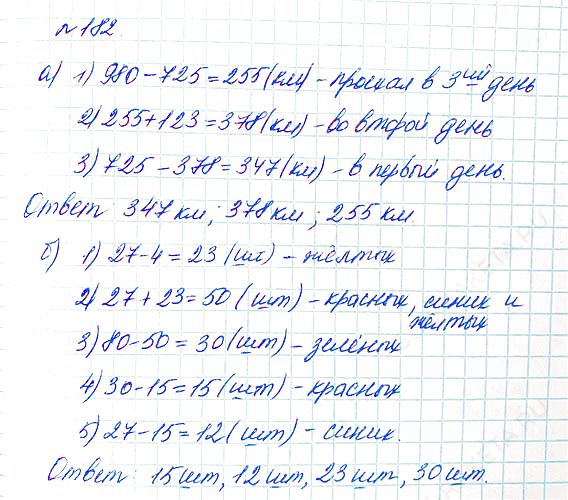 №182.
а) 1) 980-725=255(км) - проехал в 3ий день
2) 255+123=378(км) - во второй день
3) 725-378=347(км) - в первый день.
Ответ: 347 км; 378 км; 255 км.
б) 1) 27-4=23 (шт) - жёлтых
2) 27+23=50 (шт) - красных, синих и
жёлтых
3) 80-50=30 (шт) - зелёных
4) 30-15=15 (шт) - красных
5) 27-15=12 (шт) - синих.
Ответ: 15 шт, 12 шт, 23 шт, 30 шт.